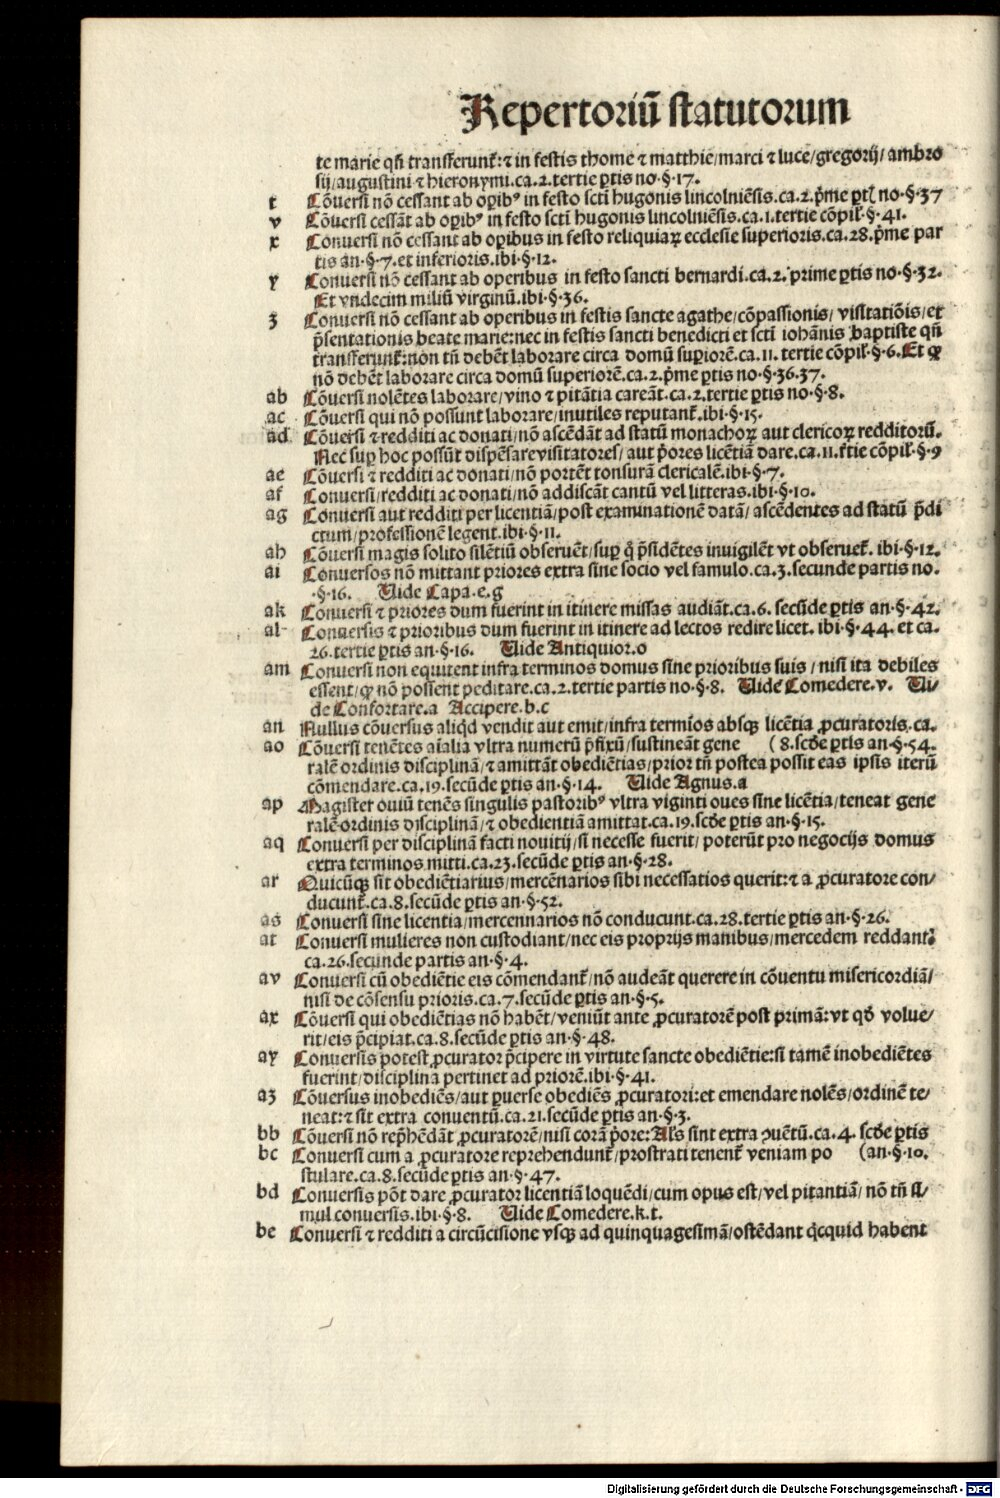 Repertoriū statutorum
te marie qñ transferunt̄: ⁊ in festis thome ⁊ matthie/marci ⁊ luce/gregorij/ambro
sij/augustini ⁊ hieronymi.ca.2.tertie ꝑtis no.§.17.
t Cōuersi nō cessant ab oꝑibꝰ in festo scti hugonis lincolniēsis.ca.2.p̄me ꝑtꝭ no.§.37
v Cōuersi cessāt ab oꝑibꝰ in festo scti hugonis lincolniēsis.ca.1.tertie cōpil.§.41.
x Conuersi nō cessant ab oꝑibus in festo reliquiaꝝ ecclesie superioris.ca.28.p̄me par
tis an.§.7.et inferioris.ibi.§.12.
y Conuersi nō cessant ab operibus in festo sancti bernardi.ca.2.prime ꝑtis no.§.32.
Et vndecim miliū virginū.ibi.§.36.
ȝ Conuersi nō cessant ab operibus in festis sancte agathe/cōpassionis/visitatiōis/et
p̄sentationis beate marie:nec in festis sancti benedicti et scti iohānis baptiste qñ
transferunt̄:non tñ debēt laborare circa domū suꝑiorē.ca.11.tertie cōpil.§.6.Et ꝙ
nō debēt laborare circa domū superiorē.ca.2.p̄me ꝑtis no.§.36.37.
ab Cōuersi nolētes laborare/vino ⁊ pitātia careāt.ca.2.tertie ꝑtis no.§.8.
ac Cōuersi qui nō possunt laborare/inutiles reputant̄.ibi.§.15.
ad Cōuersi ⁊ redditi ac donati/nō ascēdāt ad statū monachoꝝ aut clericoꝝ redditorū.
Nec suꝑ hoc possūt dispēsare visitatores/aut p̄ores licētiā dare.ca.11.t̄tie cōpil.§.9
ae Cōuersi ⁊ redditi ac donati/nō portēt tonsurā clericalē.ibi.§.7.
af Conuersi/redditi ac donati/nō addiscāt cantū vel litteras.ibi.§.10.
ag Conuersi aut redditi per licentiā/post examinationē datā/ascēdentes ad statū p̄di
ctum/professionē legent.ibi.§.11.
ah Cōuersi magis solito silētiū obseruēt/suꝑ q̊ p̄sidētes inuigilēt vt obseruet̄.ibi.§.12.
ai Conuersos nō mittant priores extra sine socio vel famulo.ca.3.secunde partis no.
.§.16. Vide Capa.e.g
ak Conuersi ⁊ priores dum fuerint in itinere missas audiāt.ca.6.secūde ꝑtis an.§.42.
al Conuersis ⁊ prioribus dum fuerint in itinere ad lectos redire licet.ibi.§.44.et ca.
26.tertie ꝑtis an.§.16. Vide Antiquior.o
am Conuersi non equitent infra terminos domus sine prioribus suis/nisi ita debiles
essent/ꝙ nō possent peditare.ca.2.tertie partis no.§.8. Vide Comedere.v. Vi/
de Confortare.a Accipere.b.c
an Nullus cōuersus aliqd̄ vendit aut emit/infra termīos absqꝫ licētia ꝓcuratoris.ca.
ao Cōuersi tenētes aīalia vltra numerū p̄fixū/sustineāt gene (8.scd̄e ꝑtis an.§.54.
ralē ordinis disciplinā/⁊ amittāt obediētias/prior tñ postea possit eas ipsis iterū
cōmendare.ca.19.secūde ꝑtis an.§.14. Vide Agnus.a
ap Magister ouiū tenēs singulis pastoribꝰ vltra viginti oues sine licētia/teneat gene
ralē ordinis disciplinā/⁊ obedientiā amittat.ca.19.scd̄e ꝑtis an.§.15.
aq Conuersi per disciplinā facti nouitij/si necesse fuerit/poterūt pro negocijs domus
extra terminos mitti.ca.23.secūde ꝑtis an.§.28.
ar Quicūqꝫ sit obediētiarius/mercēnarios sibi necessatios querit:⁊ a ꝓcuratore con/
ducunt̄.ca.8.secūde ꝑtis an.§.52.
as Conuersi sine licentia/mercennarios nō conducunt.ca.28.tertie ꝑtis an.§.26.
at Conuersi mulieres non custodiant/nec eis proprijs manibus/mercedem reddant:
ca.26.secunde partis an.§.4.
av Conuersi cū obediētie eis cōmendant̄/nō audeāt querere in cōuentu misericordiā/
nisi de cōsensu prioris.ca.7.secūde ꝑtis an.§.5.
ax Cōuersi qui obediētias nō habēt/veniūt ante ꝓcuratorē post primā:vt qd̄ volue/
rit/eis p̄cipiat.ca.8.secūde ꝑtis an.§.48.
ay Conuersis potest ꝓcurator p̄cipere in virtute sancte obediētie:si tamē inobediētes
fuerint/disciplina pertinet ad priorē.ibi.§.41.
aȝ Cōuersus inobediēs/aut ꝑuerse obediēs ꝓcuratori:et emendare nolēs/ordinē te/
neat:⁊ sit extra conuentū.ca.21.secūde ꝑtis an.§.3.
bb Cōuersi nō rep̄hēdāt ꝓcuratorē/nisi corā p̄ore:Als̄ sint extra ↄuētū.ca.4.scd̄e ꝑtis
bc Conuersi cum a ꝓcuratore reprehendunt̄/prostrati tenent̄ veniam po (an.§.10.
stulare.ca.8.secūde ꝑtis an.§.47.
bd Conuersis pōt dare ꝓcurator licentiā loquēdi/cum opus est/vel pitantiā/nō tñ si/
mul conuersis.ibi.§.8. Vide Comedere.k.t.
be Conuersi ⁊ redditi a circūcisione vsqꝫ ad quinquagesimā/ostēdant qcquid habent
Digitalisierung gefördert durch die Deutsche Forschungsgemeinschaft - DFG